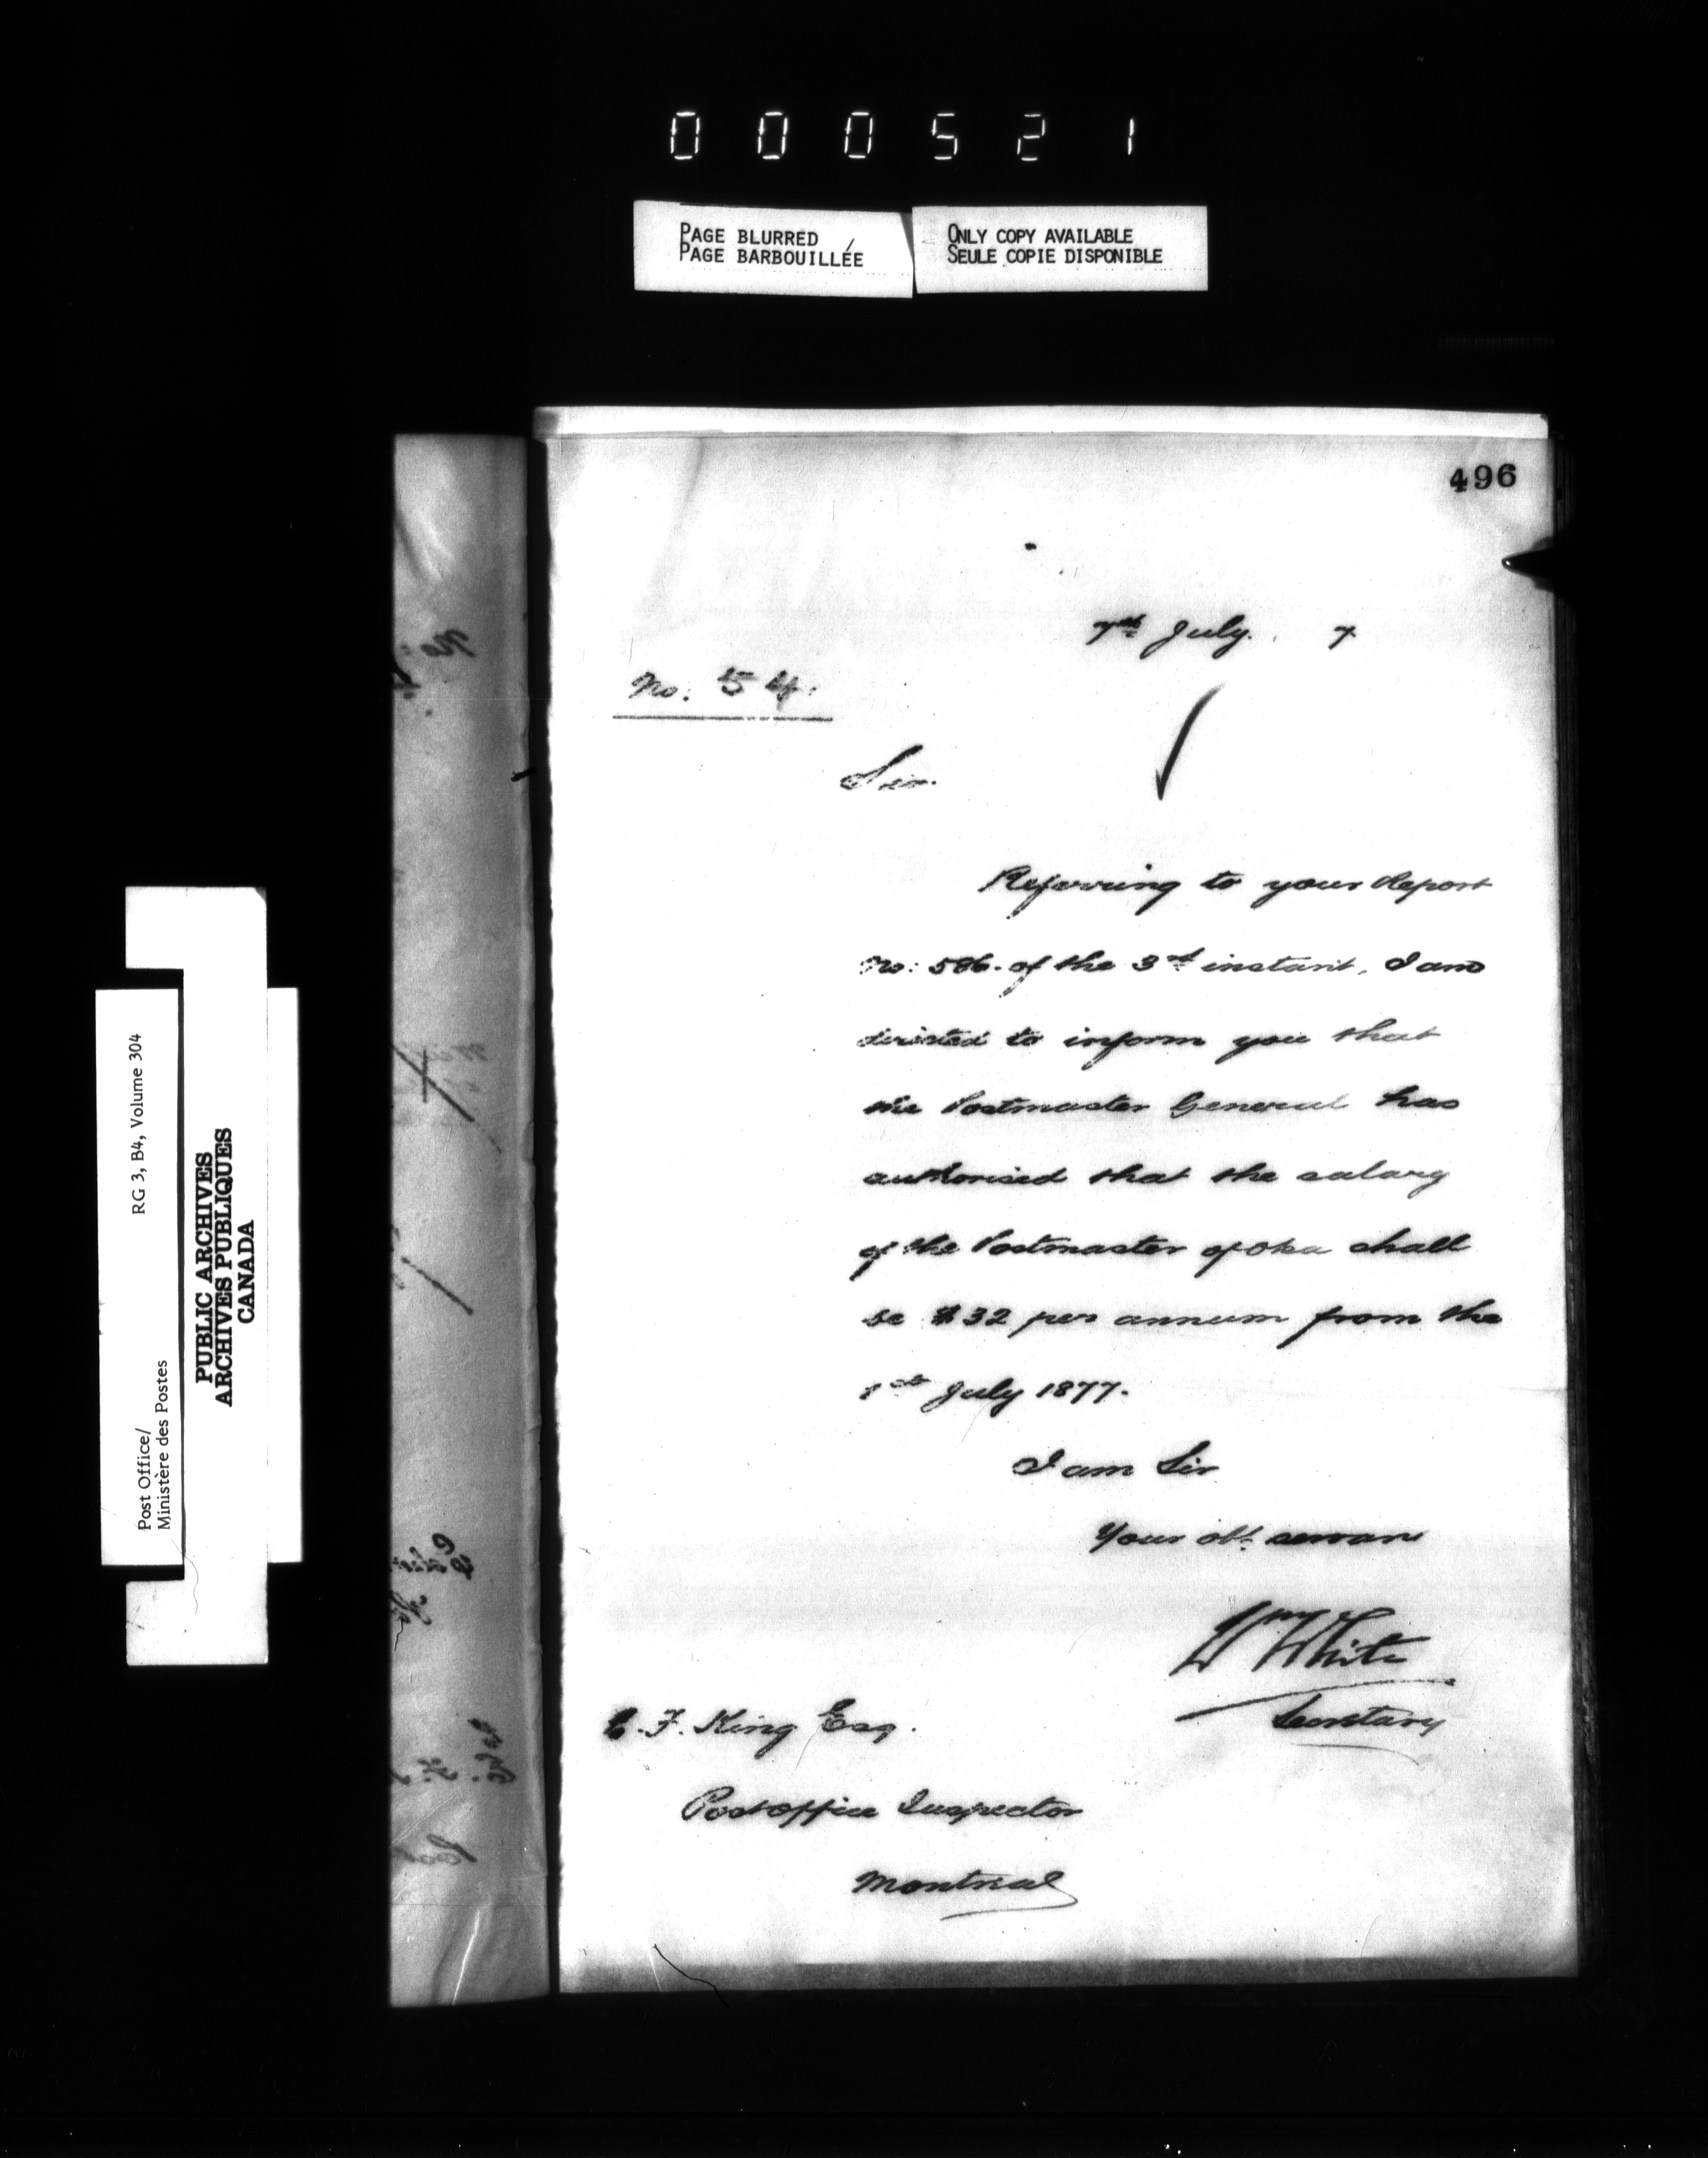 000521
PAGE BLURRED
PAGE BARBOUILLÉE
ONLY COPY AVAILABLE
SEULE COPIE DISPONIBLE
496
7th July. 7
No. 54.
Sir.
Referring to your Report
No: 586. of the 3rd instant, I am
directed to inform you that
the Postmaster General has
authorised that the salary
of the Postmaster of Oka shall
be $32 per annum from the
1st July 1877.
I am Sir
Your obt. servant
Wm White
Secretary
C. F. King Esq.
Post Office Inspector
Montreal
Post Office/
Ministère des Postes
RG 3, B4, Volume 304
PUBLIC ARCHIVES
ARCHIVES PUBLIQUES
CANADA